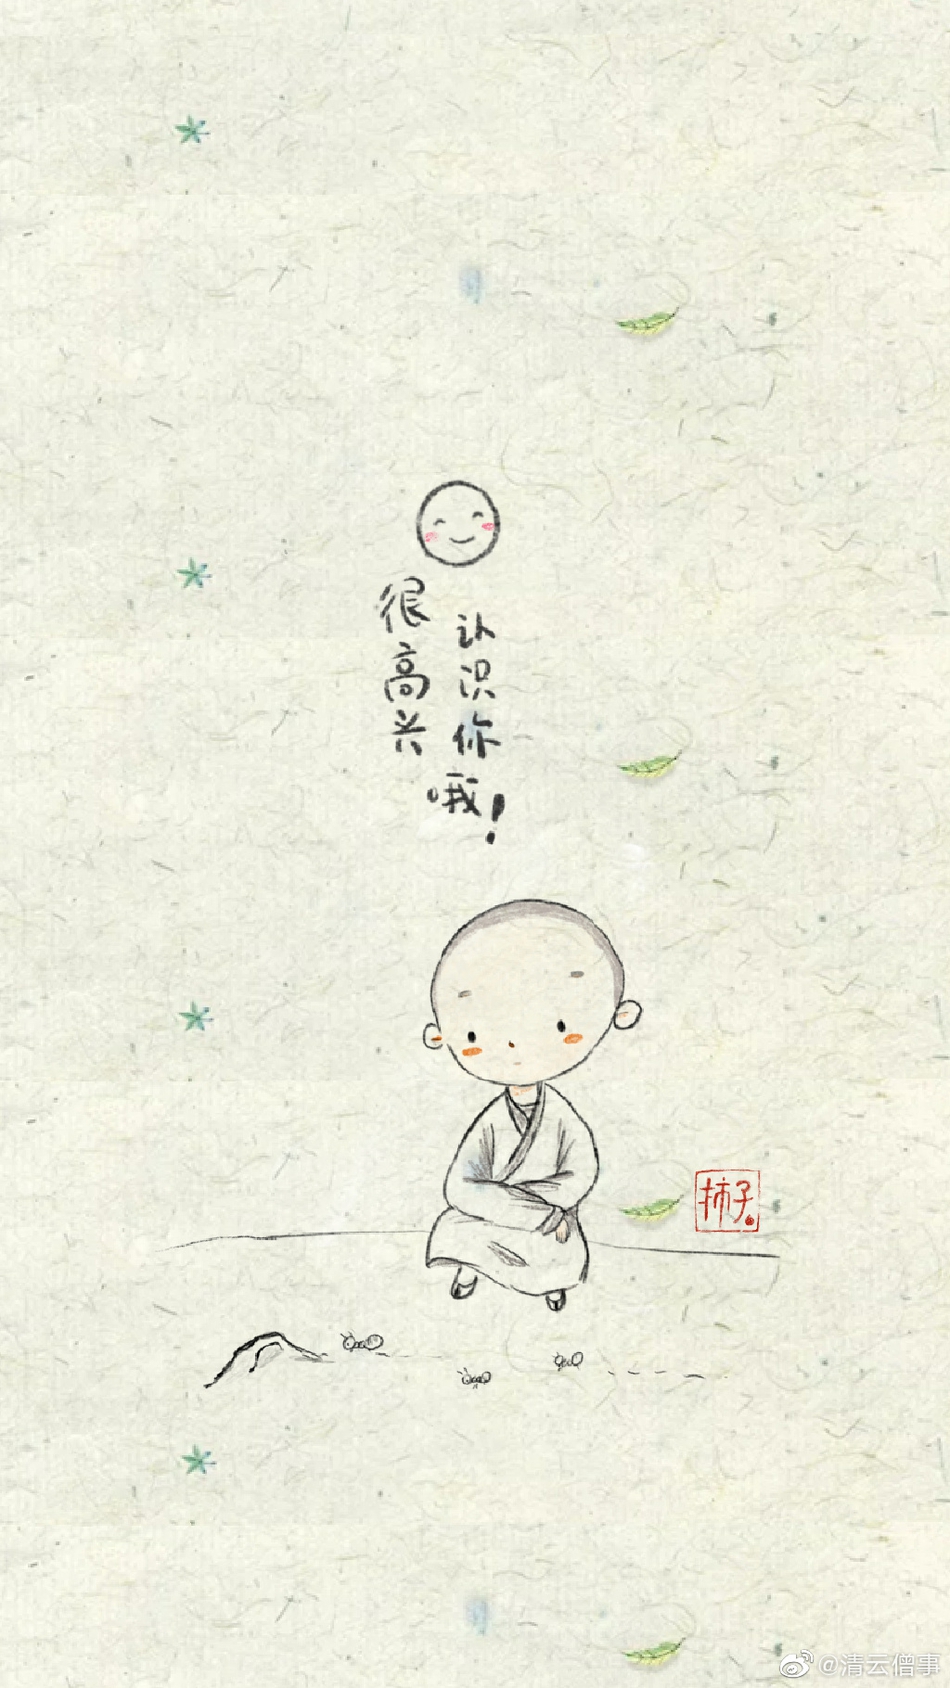 很高兴
认识你
哦！
柿子
@清云僧事